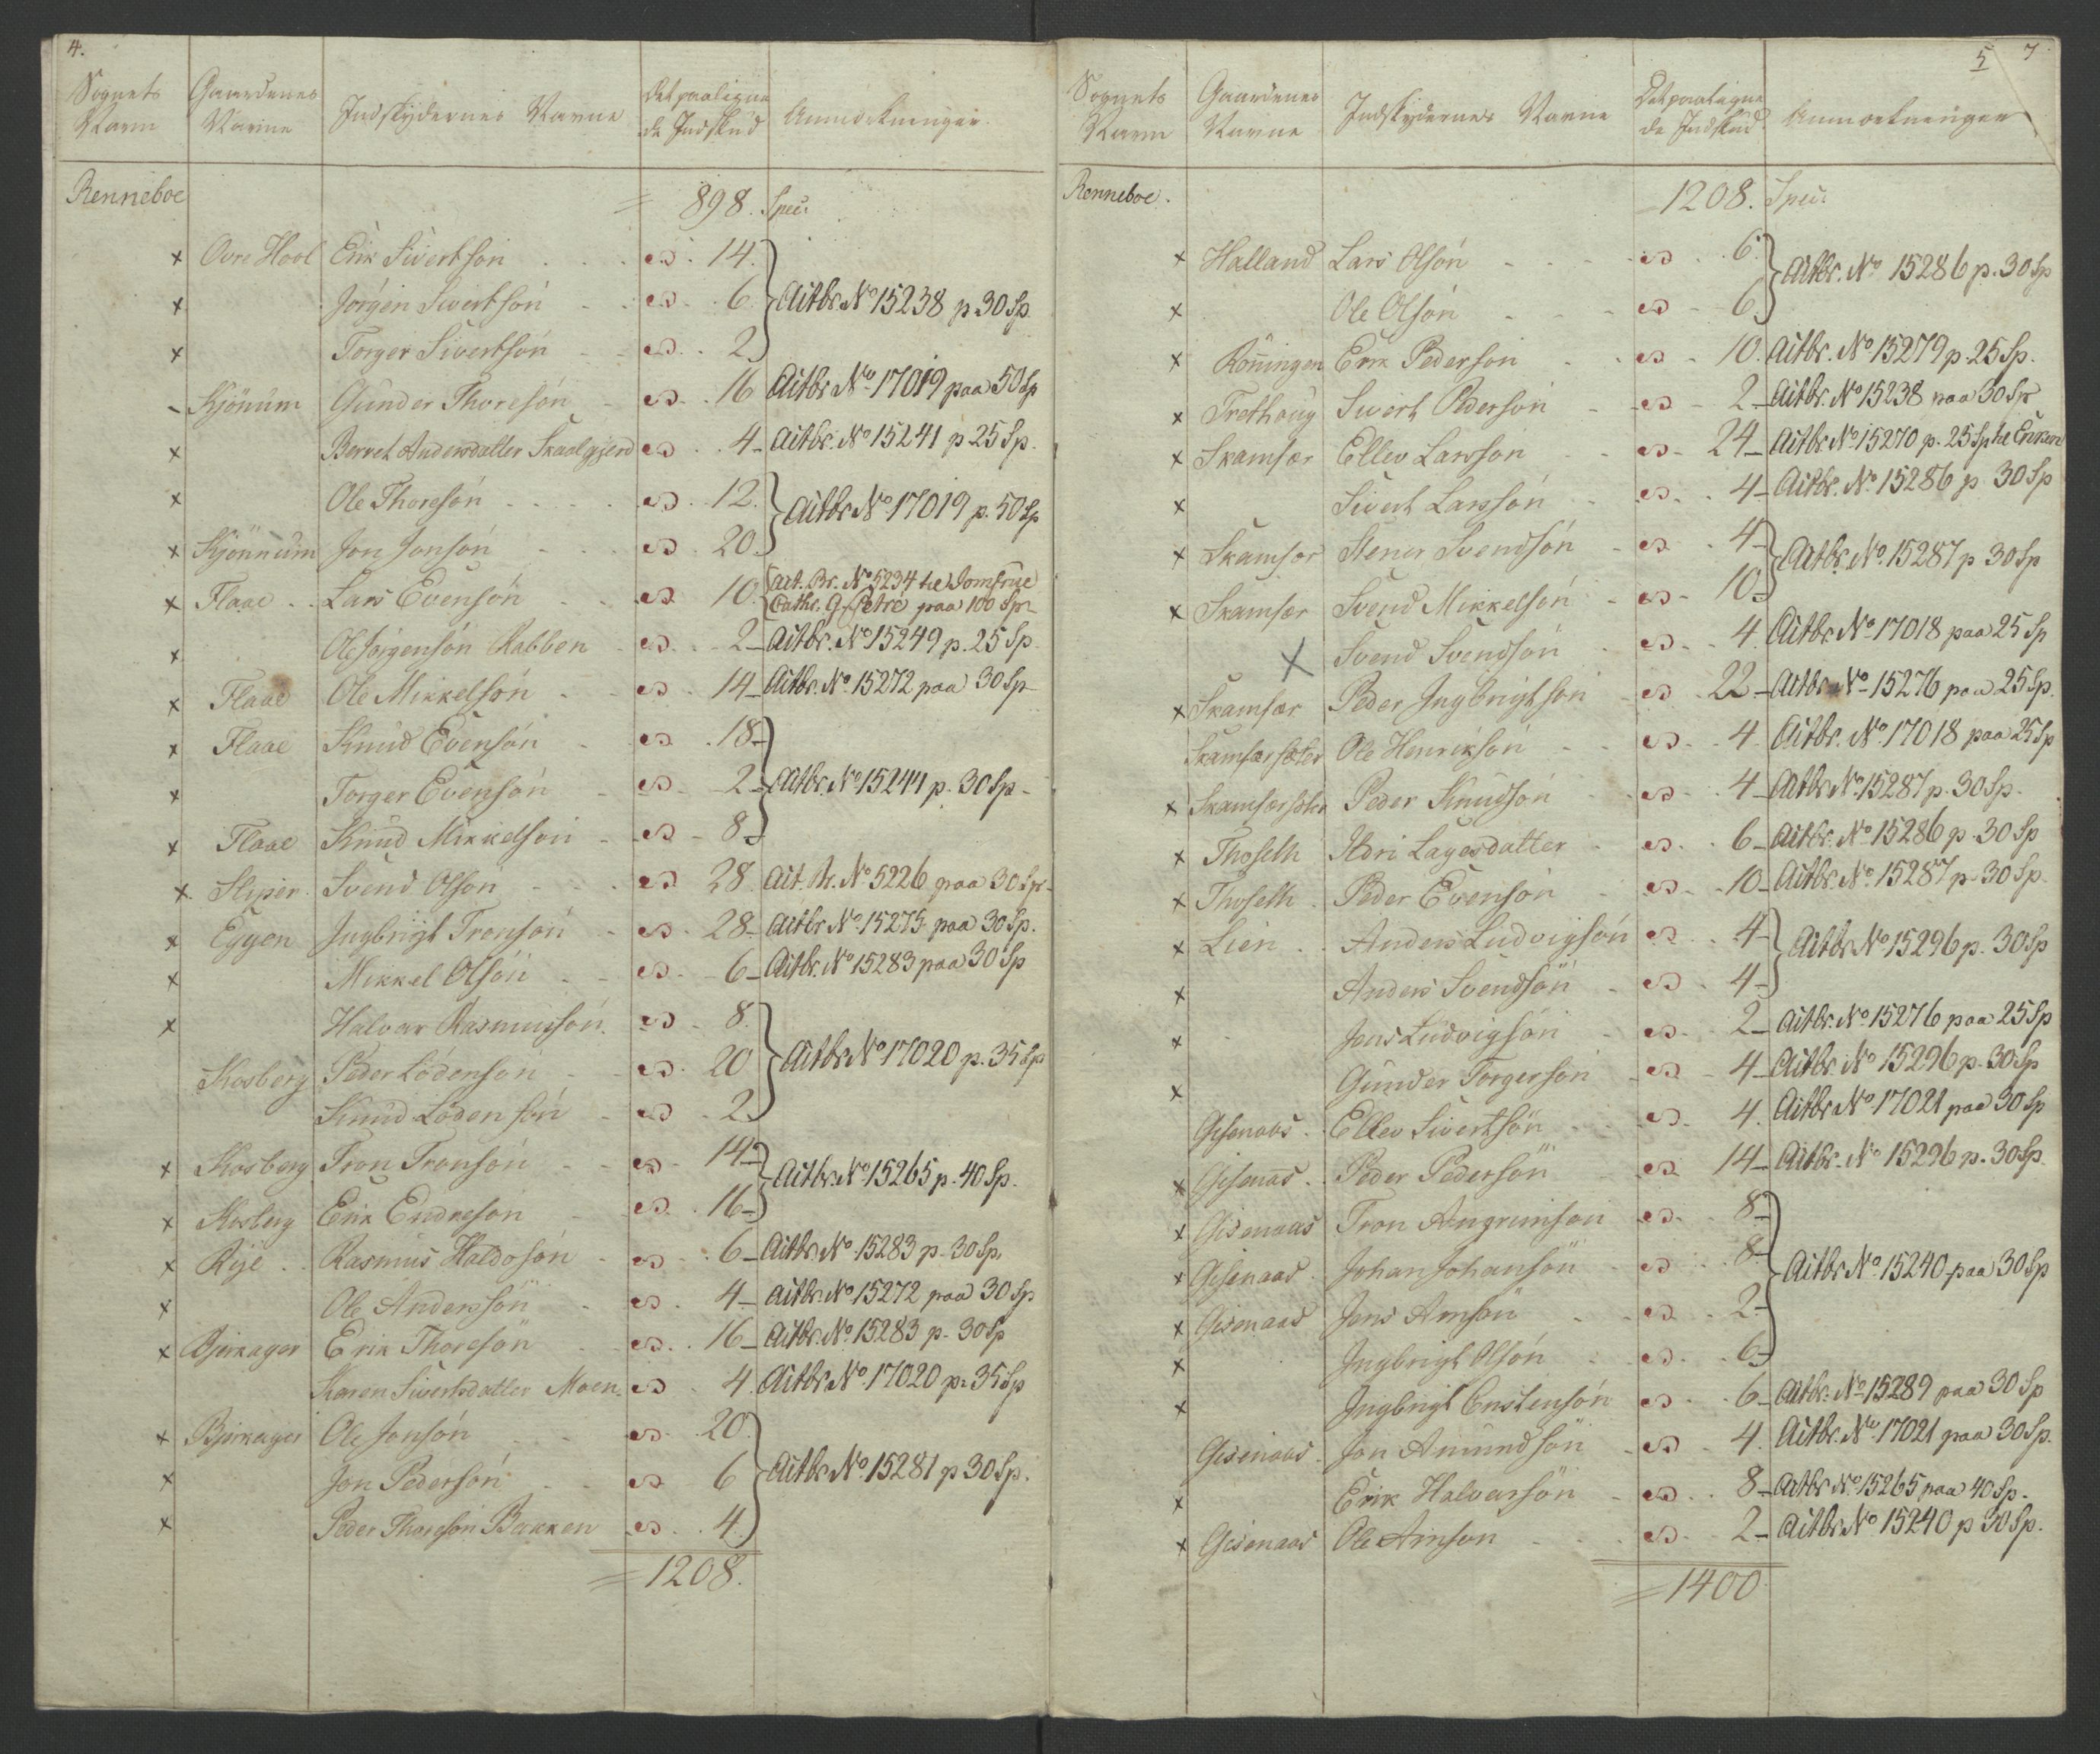 4.
Sognets Navn | Gaardenes Navne | Indskydernes Navne | Det paaligne de Indskud | Anmærkninger.
Renneboe = 898. Spec:
x Ovre Hool Erik Sivertsön 14.
x Jörgen Sivertsön 6. } Actbr. No 15238 p. 30 Sp.
x Torger Sivertsön 2.
Skjönum Gunder Thoresön 16 Actbr. No 17019 paa 50 Sp
x Berret Andersdatter Skaalgjerd 4 Actbr. No 15241 p. 25 Sp.
x Ole Thoresön 12. } Actbr. No 17019 p. 50 Sp
x Skjönnum Jon Jonsön 20.
x Flaae Lars Evensön 10. { Act. Br. No 5234 til Jomfrue
Cathr. G. Petre paa 100 Sp
x Ole Jörgensön Rabben 2 Actbr. No 15249 p. 25 Sp.
x Flaae Ole Mikkelsön 14 Actbr. No 15272 paa 30 Sp
x Flaae Knud Evensön 18
x Torger Evensön 2 } Actbr. No 15244 p. 30 Sp
x Flaae Knud Mikkelsön 8
x Sliper Svend Olsön 28. Act. Br. No 5226 paa 30 Sp
x Eggen Ingbrigt Tronsön 28. Actbr No 15275 paa 30 Sp.
x Mikkel Olsön 6 Actbr. No 15283 paa 30 Sp
x Halvar Rasmusson 8.
Skosberg Peder Lödensön 20 } Actbr No 17020 p. 35 Sp
Knud Lödensön 2.
x Skosberg Tron Tronsön 14 } Actbr. No 15265 p. 40 Sp.
x Skosberg Erik Endresön 16
x Rÿe Rasmus Haldosön 6 Actbr. No 15283 p. 30 Sp.
x Ole Anderssön 4 Actbr. No 15272 paa 30 Sp
x Bjerkager Erik Thoresön 16 Actbr. No 15283 p. 30 Sp
Karen Sivertsdatter Moen 4. Actbr. No 17020 p. 35 Sp
x Bjerkager Ole Jonsön 20.
x Jon Pedersön 6 } Actbr. No 15281 p 30 Sp.
x Peder Thoresön Bakken 4.
= 1208.
5 7
Sognets Navn | Gaardenes Navne | Indskydernes Navne | Det paaligne de Indskud | Anmærkninger
Renneboe. 1208. Spec:
x Halland Lars Olsön 6. } Actbr. No 15286 p. 30 Sp
x Ole Olsön 6.
x Rönningen Erik Pedersön 10. Actbr. No 15279 p. 25 Sp.
x Trethoug Sivert Pedersön 2 Actbr. No 15238 paa 30 Sp
x Skamfær Ellev Larssön 24 Actbr. No 15270 p. 25 Sp til Enken
x Sivert Larssön 4 Actbr. No 15286 p. 30 Sp
x Skamfær Stener Svendsön 4 } Actbr. No 15287 p 30 Sp
x Skamfær Svend Mikkelsön 10
x Svend Svendsön 4. Actbr. No 17018 paa 25 Sp
x Skamfær Peder Ingbrigtsön 22 Actbr. No 15276 paa 25 Sp.
Skamfærsæter Ole Henriksön 4. Actbr. No 17018 paa 25 Sp
x Skamfærsæter Peder Knudsön 4 Actbr No 15287 p. 30 Sp.
x Thoseth Ildri Lagesdatter 6 Actbr. No 15286 p. 30 Sp
x Thoseth Peder Evensön 10 Actbr. No 15287 p. 30 Sp
x Lien Anders Ludvigsön 4 } Actbr No 15296 p. 30 Sp
x Anders Svendsön 4
x Jens Ludvigsön 2 Actbr. No 15276 paa 25 Sp
x Gunder Torgersön 4 Actbr. No 15296 p. 30 Sp
Gisenaas Ellev Sivertsön 4. Actbr No 17021 paa 30 Sp
x Gisenaas Peder Pedersön 14 Actbr. No 15296 p. 30 Sp.
x Gisenaas Tron Angrimsön 8
x Gisenaas Johan Johansön 8 } Actbr No 15240 paa 30 Sp
x Gisenaas Jens Arnsön 2
x Ingbrigt Olsön 6
x Ingbrigt Enstensön 6 Actbr. No 15289 paa 30 Sp
Gisenaas Jon Amundsön 4. Actbr. No 17021 paa 30 Sp.
x Erik Halvarsön 8 Actbr. No 15265 paa 40 Sp.
x Gisenaas Ole Arnsön 2 Actbr No 15240 p 30 Sp.
= 1400